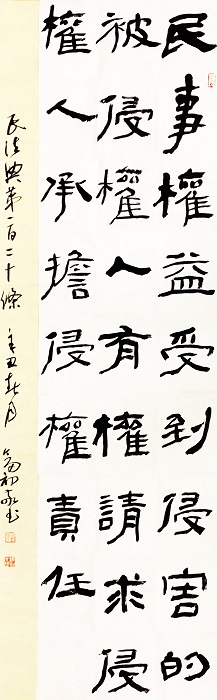 民事權益受到侵害的
被侵權人有權請求侵
權人承擔侵權責任
民法典第一百二十條 辛丑春月